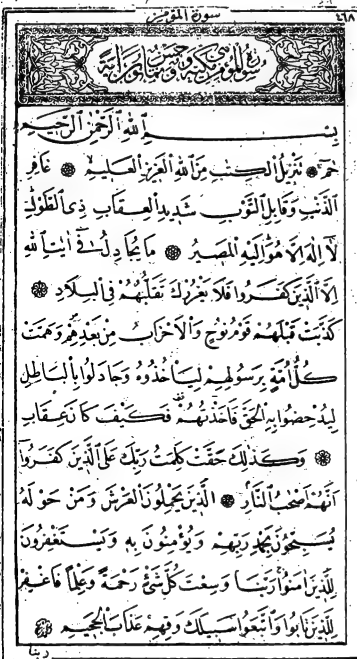 ٤٦٨ سورة المؤمن
سورة المؤمن مكية وهي خمس وثمانون آية
بِسْمِ اللهِ الرَّحْمٰنِ الرَّحِيمِ
حٰمٓ تَنْزِيلُ الْكِتَابِ مِنَ اللهِ الْعَزِيزِ الْعَلِيمِ غَافِرِ
الذَّنْبِ وَقَابِلِ التَّوْبِ شَدِيدِ الْعِقَابِ ذِي الطَّوْلِ
لَا إِلٰهَ إِلَّا هُوَ إِلَيْهِ الْمَصِيرُ مَا يُجَادِلُ فِي آيَاتِ اللهِ
إِلَّا الَّذِينَ كَفَرُوا فَلَا يَغْرُرْكَ تَقَلُّبُهُمْ فِي الْبِلَادِ
كَذَّبَتْ قَبْلَهُمْ قَوْمُ نُوحٍ وَالْأَحْزَابُ مِنْ بَعْدِهِمْ وَهَمَّتْ
كُلُّ أُمَّةٍ بِرَسُولِهِمْ لِيَأْخُذُوهُ وَجَادَلُوا بِالْبَاطِلِ
لِيُدْحِضُوا بِهِ الْحَقَّ فَأَخَذْتُهُمْ فَكَيْفَ كَانَ عِقَابِ
وَكَذٰلِكَ حَقَّتْ كَلِمَتُ رَبِّكَ عَلَى الَّذِينَ كَفَرُوا
أَنَّهُمْ أَصْحَابُ النَّارِ الَّذِينَ يَحْمِلُونَ الْعَرْشَ وَمَنْ حَوْلَهُ
يُسَبِّحُونَ بِحَمْدِ رَبِّهِمْ وَيُؤْمِنُونَ بِهِ وَيَسْتَغْفِرُونَ
لِلَّذِينَ آمَنُوا رَبَّنَا وَسِعْتَ كُلَّ شَيْءٍ رَحْمَةً وَعِلْمًا فَاغْفِرْ
لِلَّذِينَ تَابُوا وَاتَّبَعُوا سَبِيلَكَ وَقِهِمْ عَذَابَ الْجَحِيمِ
ربنا